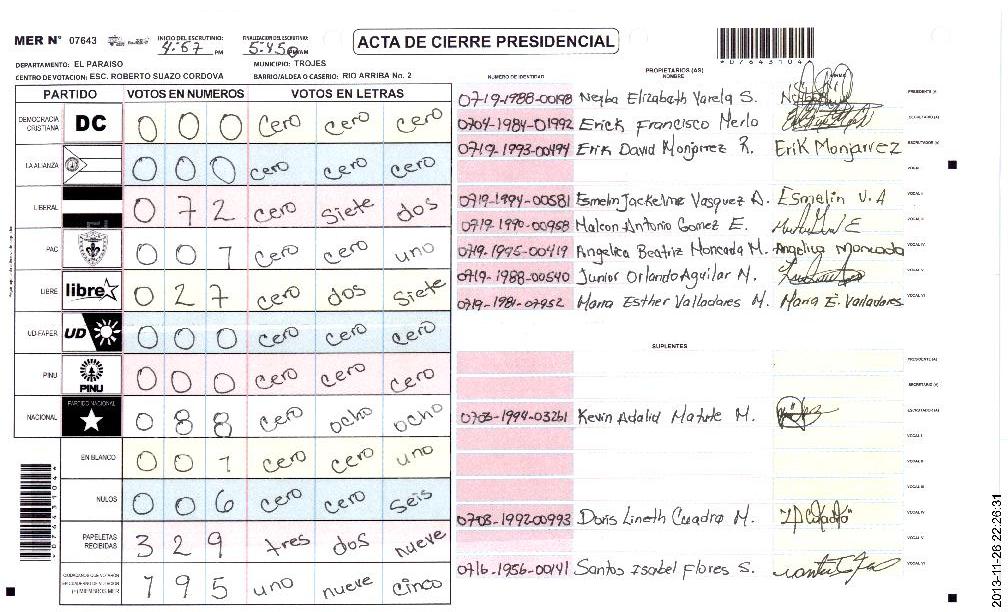 MER N° 07643
INICIO DEL ESCRUTINIO: 4:57 PM
FINALIZACION DEL ESCRUTINIO: 5:45
ACTA DE CIERRE PRESIDENCIAL
*07643104*
DEPARTAMENTO: EL PARAISO
MUNICIPIO: TROJES
CENTRO DE VOTACION: ESC. ROBERTO SUAZO CORDOVA
BARRIO/ALDEA O CASERIO: RIO ARRIBA No. 2
PARTIDO VOTOS EN NUMEROS VOTOS EN LETRAS
DEMOCRACIA CRISTIANA DC 0 0 0 cero cero cero
LA ALIANZA 0 0 0 cero cero cero
LIBERAL 0 7 2 cero siete dos
PAC 0 0 1 cero cero uno
LIBRE libre 0 2 7 cero dos siete
UD-FAPER UD 0 0 0 cero cero cero
PINU PINU 0 0 0 cero cero cero
NACIONAL PARTIDO NACIONAL 0 8 8 cero ocho ocho
EN BLANCO 0 0 1 cero cero uno
NULOS 0 0 6 cero cero seis
PAPELETAS RECIBIDAS 3 2 9 tres dos nueve
CIUDADANOS QUE VOTARON 1 9 5 uno nueve cinco
PROPIETARIOS (AS)
NÚMERO DE IDENTIDAD NOMBRE FIRMA
0719-1988-00198 Neyba Elizabeth Varela S. PRESIDENTE (A)
0704-1984-01992 Erick Francisco Merlo SECRETARIO (A)
0719-1993-00494 Erik David Monjarrez R. Erik Monjarrez ESCRUTADOR (A)
VOCAL I
0719-1994-00581 Esmelin Jackeline Vasquez A. Esmelin V.A VOCAL II
0719-1990-00958 Malcon Antonio Gomez E. VOCAL III
0719-1995-00419 Angelica Beatriz Moncada M. Angelica Moncada VOCAL IV
0719-1988-00540 Junior Orlando Aguilar M. VOCAL V
0719-1981-07952 Maria Esther Valladares M. Maria E. Valladares VOCAL VI
SUPLENTES
PRESIDENTE (A)
SECRETARIO (A)
0703-1994-03261 Kevin Adalid M. ESCRUTADOR (A)
VOCAL I
VOCAL II
VOCAL III
0703-1992-00993 Doris Lineth Cuadra M. VOCAL IV
VOCAL V
0716-1956-00141 Santos Isabel Flores S. VOCAL VI
*07643104*
2013-11-26 22:26:31